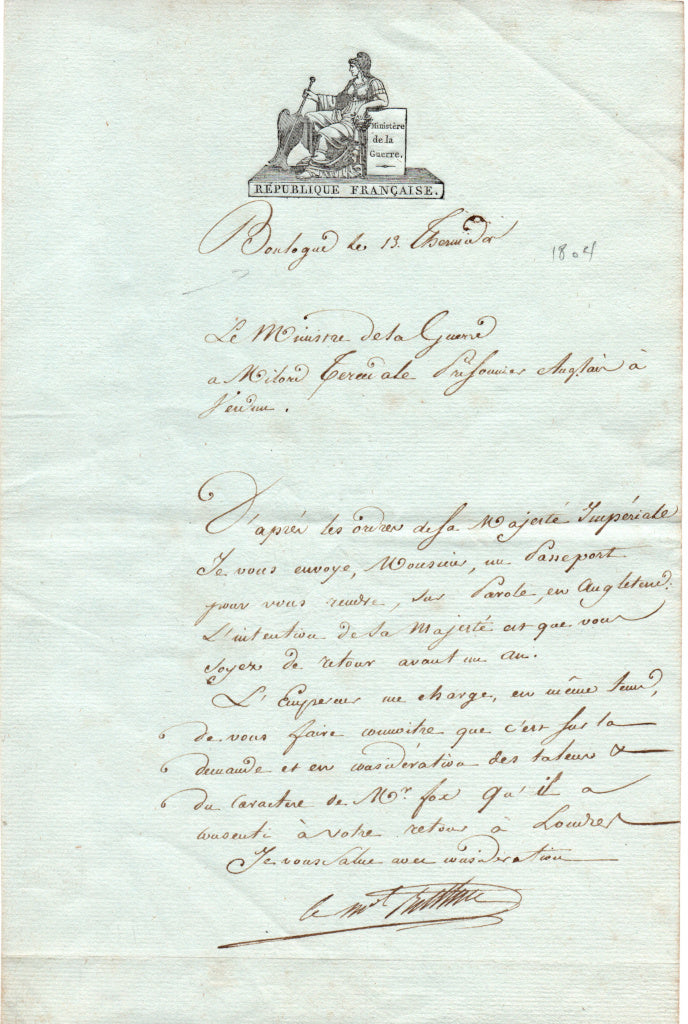 Ministère
de la
Guerre.
RÉPUBLIQUE FRANÇAISE.
Boulogne le 13. Thermidor
1804
Le Ministre de la Guerre
a Milord Prisonnier Anglais à
Verdun.
D'après les ordres de Sa Majesté Impériale
Je vous envoye, Monsieur, un Passeport
pour vous rendre, sur Parole, en Angleterre:
L'intention de Sa Majesté est que vous
soyez de retour avant un an.
L'Empereur me charge, en même tems,
de vous faire connoitre que c'est sur la
demande et en considération des talens &
du Caractère de Mr. fox qu'il a
consenti à votre retour à Londres
Je vous salue avec considération
le mal